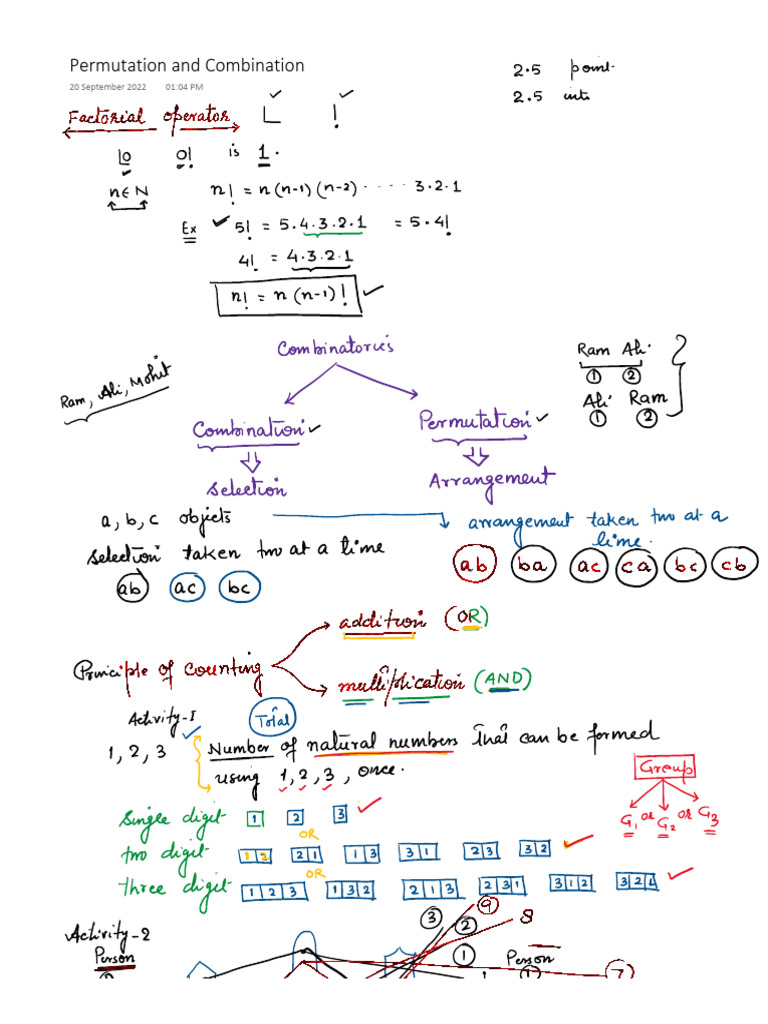 Permutation and Combination
20 September 2022 01:04 PM
2.5 point
2.5 ints
Factorial operator L !
L0 0! is 1.
n∈N n! = n(n-1)(n-2) ..... 3.2.1
Ex 5! = 5.4.3.2.1 = 5.4!
4! = 4.3.2.1
n! = n(n-1)!
Combinatorics
Ram, Ali, Mohit
Ram Ali
1 2
Ali Ram
1 2
Combination Permutation
Selection Arrangement
a, b, c objects
selection taken two at a time
ab ac bc
arrangement taken two at a
time.
ab ba ac ca bc cb
Principle of counting
addition (OR)
multiplication (AND)
Activity-I Total
1, 2, 3 Number of natural numbers that can be formed
using 1, 2, 3, once.
Group
G1 or G2 or G3
single digit 1 2 3
OR
two digit 12 21 13 31 23 32
OR
three digit 123 132 213 231 312 321
Activity-2
Person
3 2 9 8
1 Person
1 7